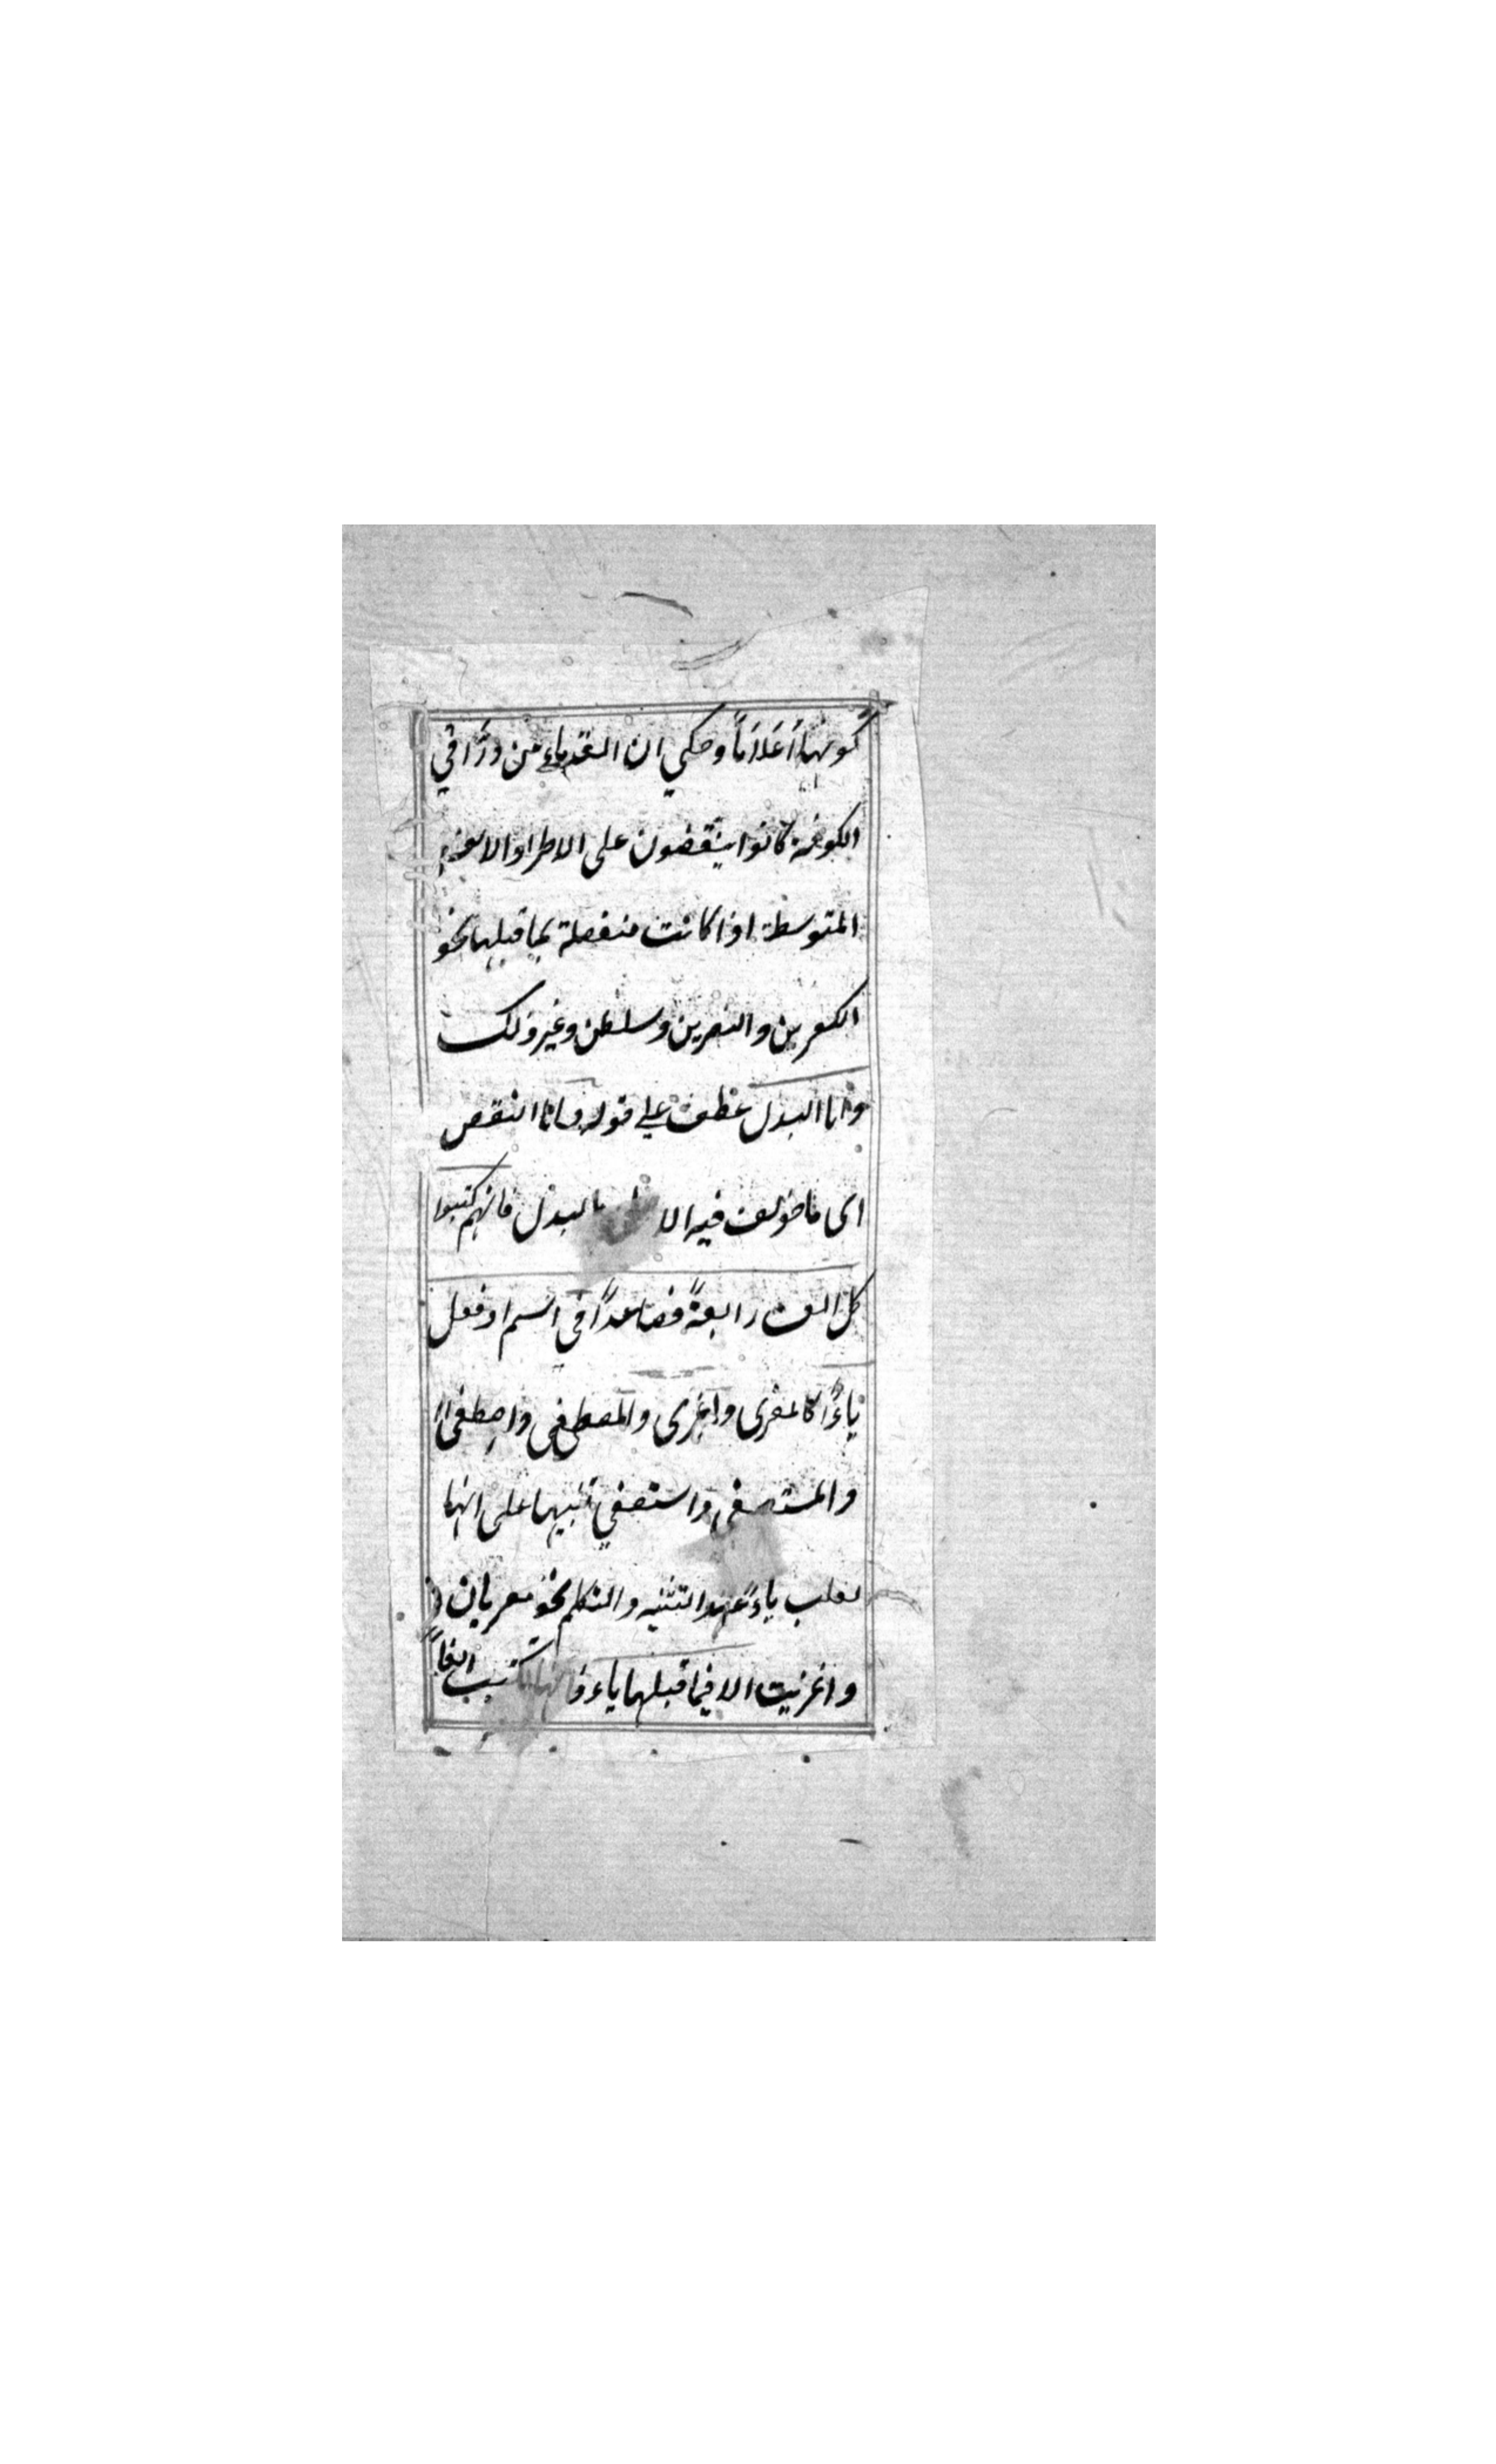 كونها أعلاماً وحكي ان القدماء من ورّاقي
الكوفة كانوا ينقصون على الاطراد الالف
المتوسطة اذا كانت متصلة بما قبلها نحو
الكفرين والنصرين وسلطن وغير ذلك
واما البدل عطف على قوله واما النقص
اى ما خولف فيه الا بالبدل فانهم كتبوا
كل الف رابعةً فصاعداً في اسم او فعل
ياءً كالمغزى واغزى والمصطفى واصطفى
والمستصفى واستصفى تنبيها على انها
تقلب ياءً عند التثنيه والتكلم نحو مغزيان
واغزيت الا فيما قبلها ياء فانها تكتب الفاً